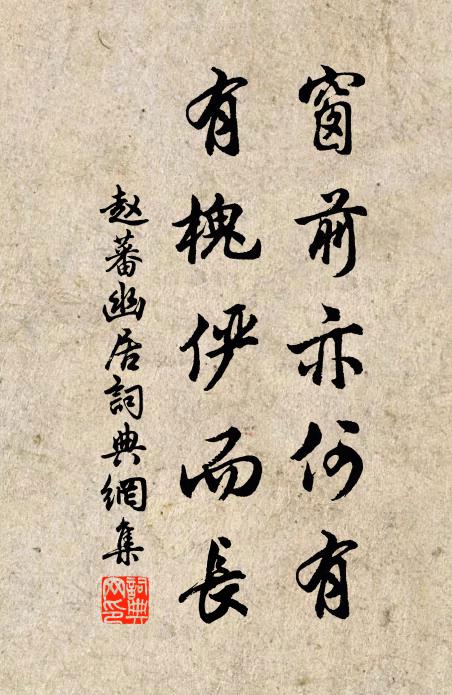 窗前亦何有
有槐俨而長
赵蕃幽居詞典網集
詞典网印